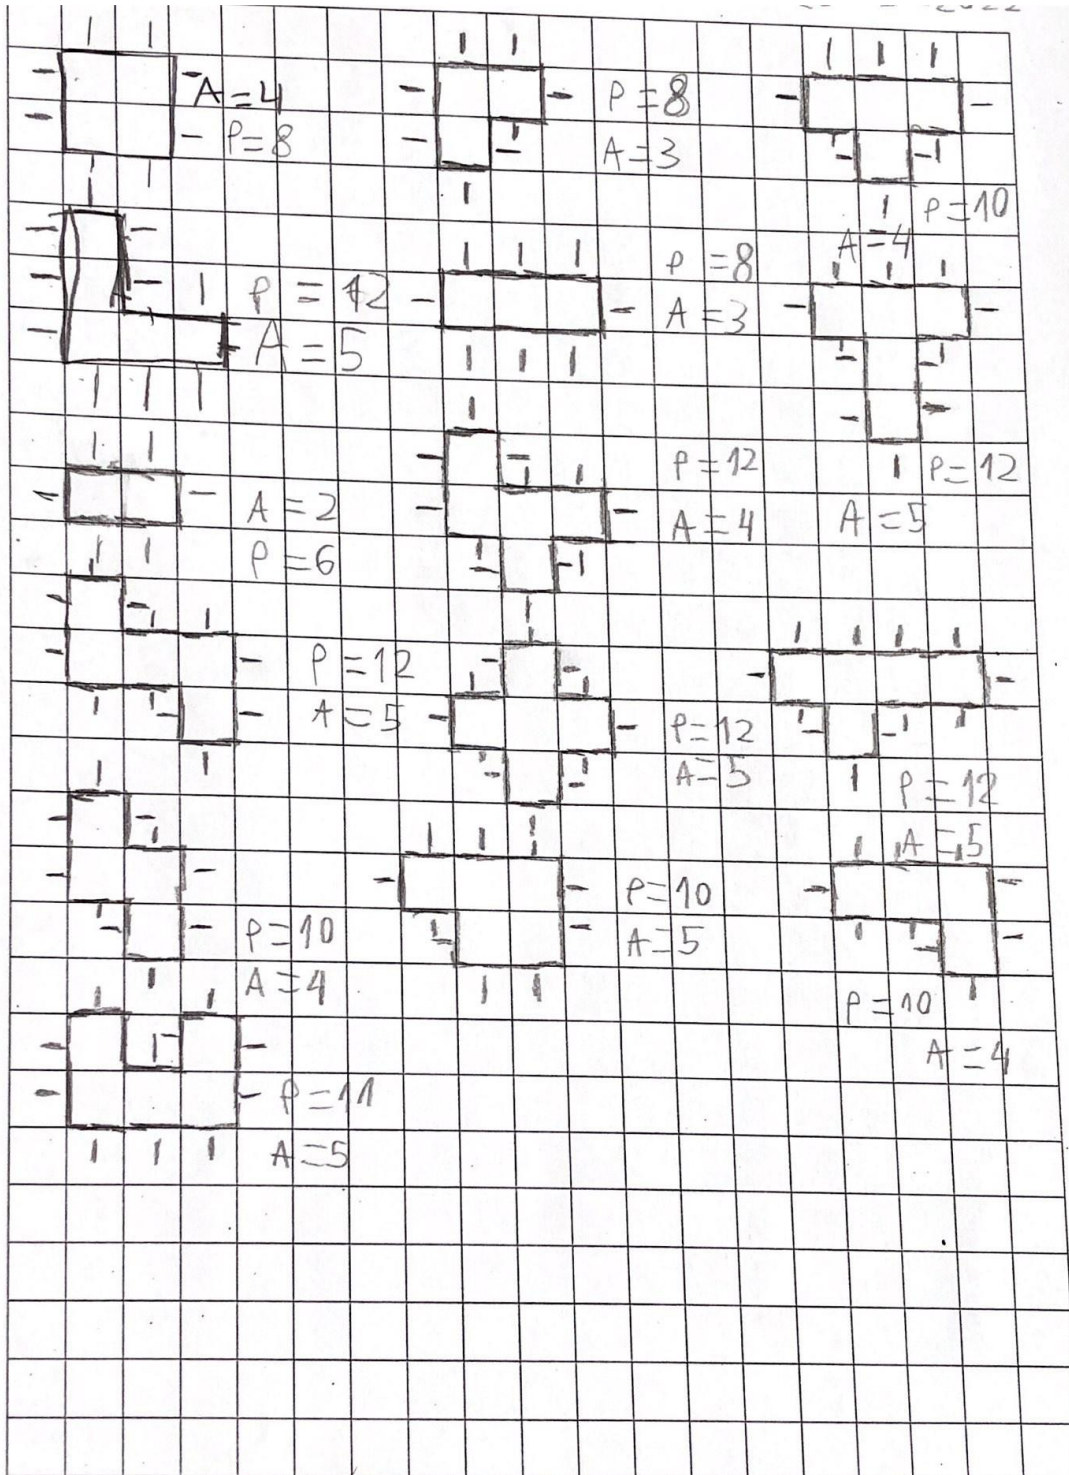 2022
A = 4
P = 8
P = 8
A = 3
P = 10
A = 4
P = 12
A = 5
P = 8
A = 3
P = 12
A = 5
A = 2
P = 6
P = 12
A = 4
P = 12
A = 5
P = 12
A = 5
P = 12
A = 5
P = 10
A = 4
P = 10
A = 5
P = 10
A = 4
P = 11
A = 5